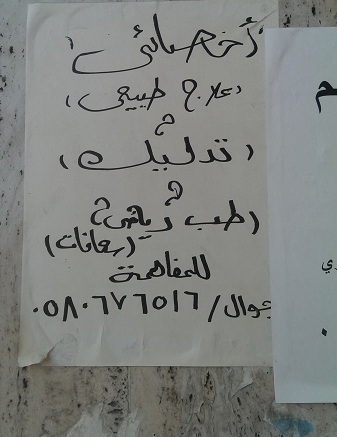 أخصائي
(علاج طبيعي)
(تدليك)
(طب رياضي)
(رعانات)
للمفاهمة
جوال/ ٠٥٨٠٦٧٦٥١٦
م
ري